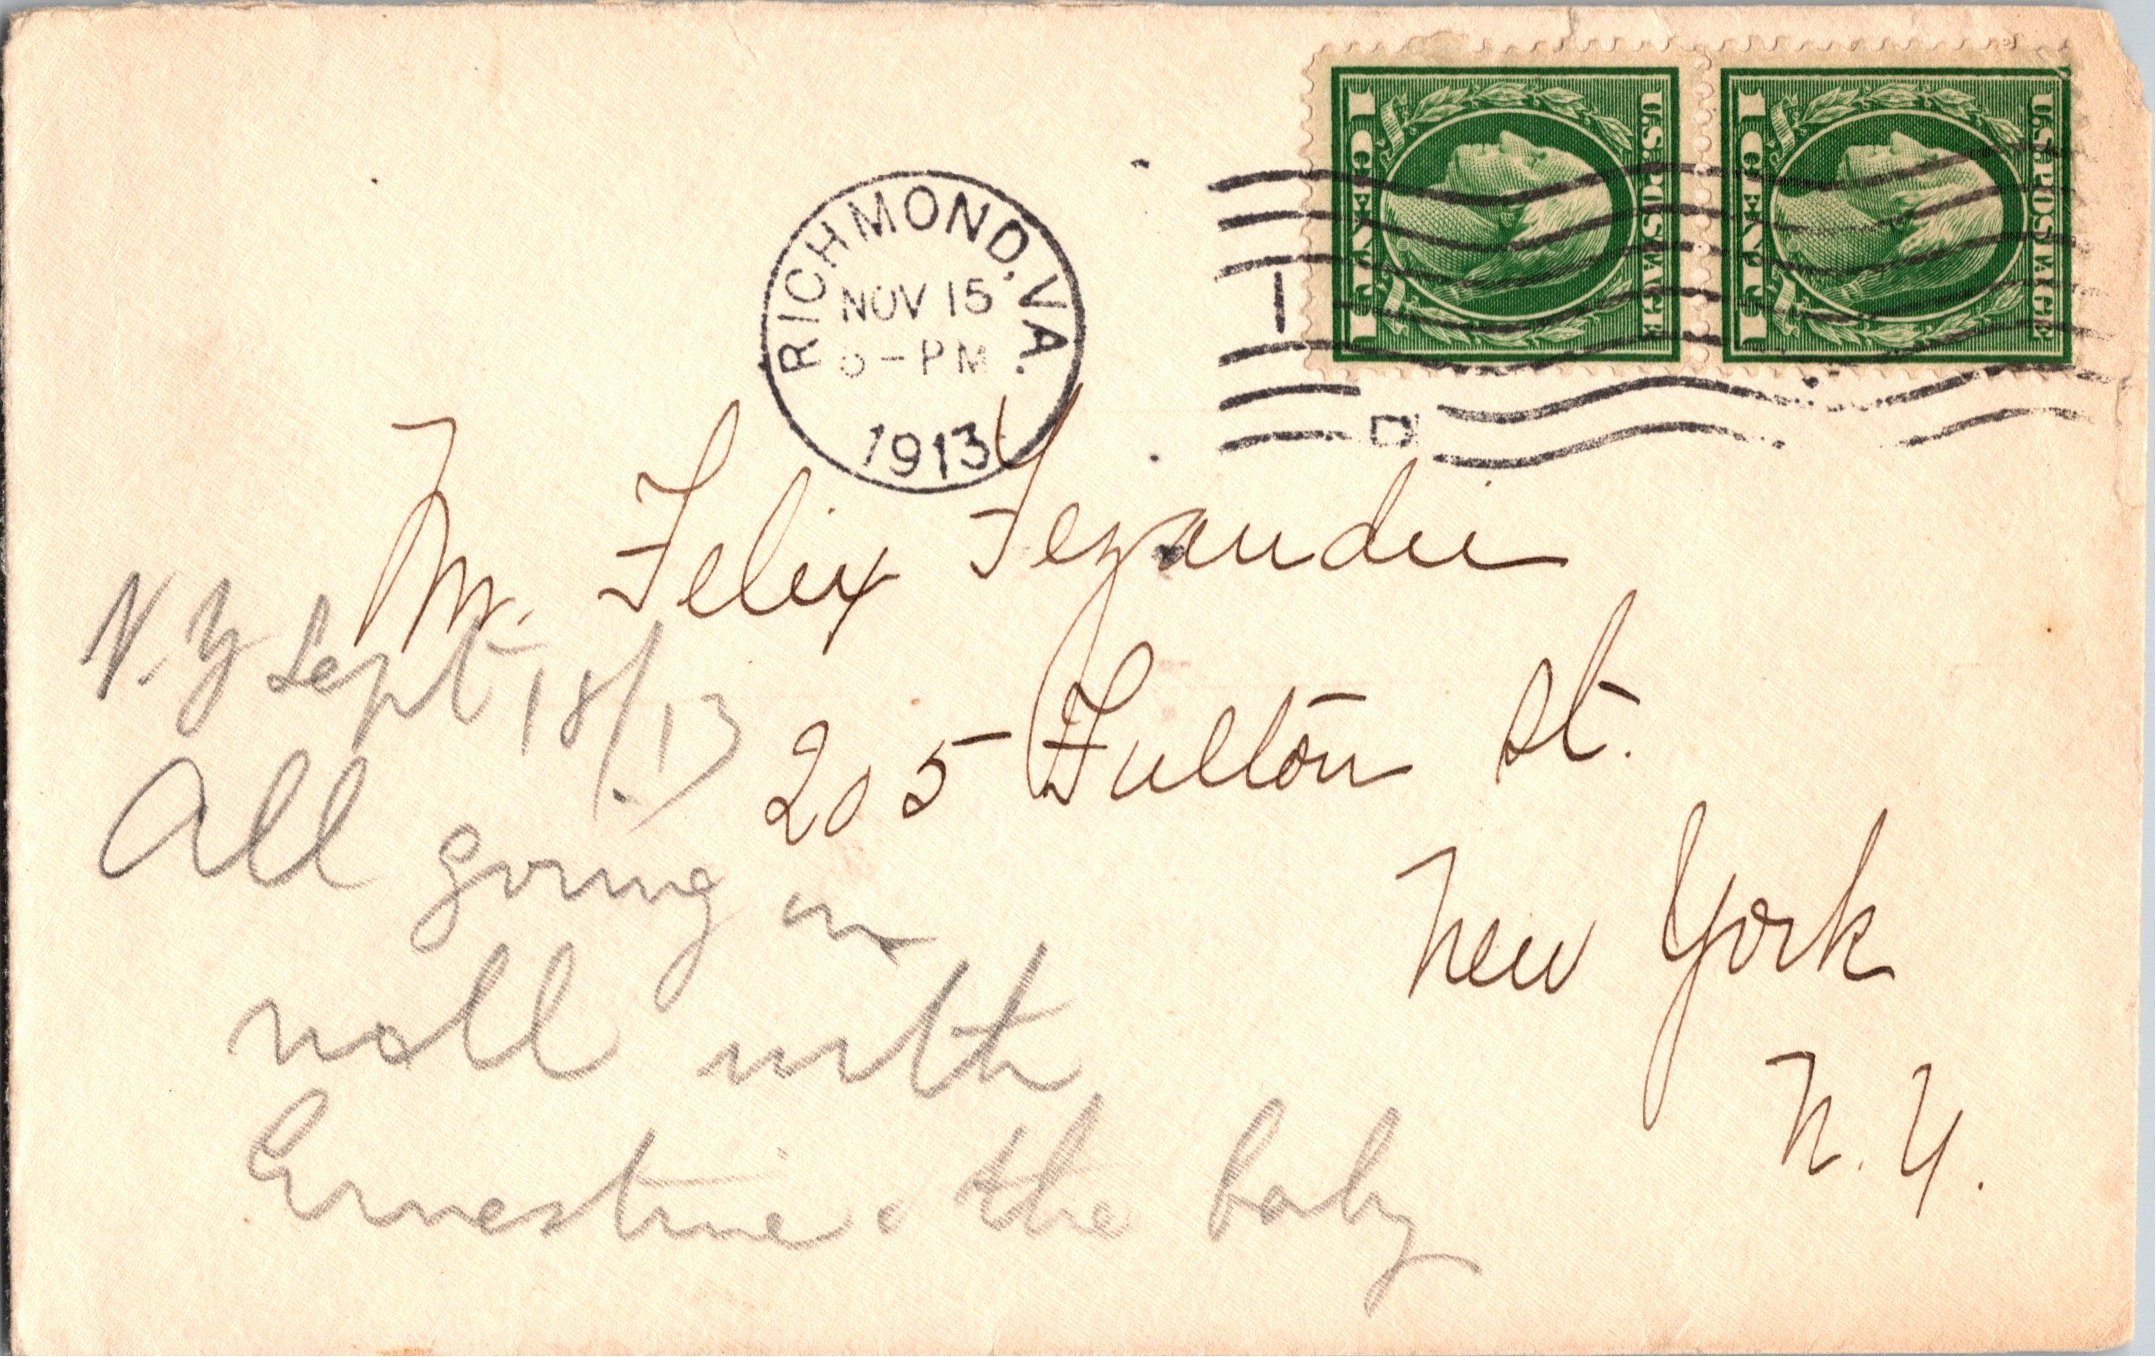 U.S. POSTAGE
1 CENT 1
U.S. POSTAGE
1 CENT 1
RICHMOND, VA.
NOV 15
-PM
1913
Mr. Felix Fezandie
205 Fulton St.
New York
N.Y.
N.Y Sept 18/13
All going on
well with
Ernestine & the baby